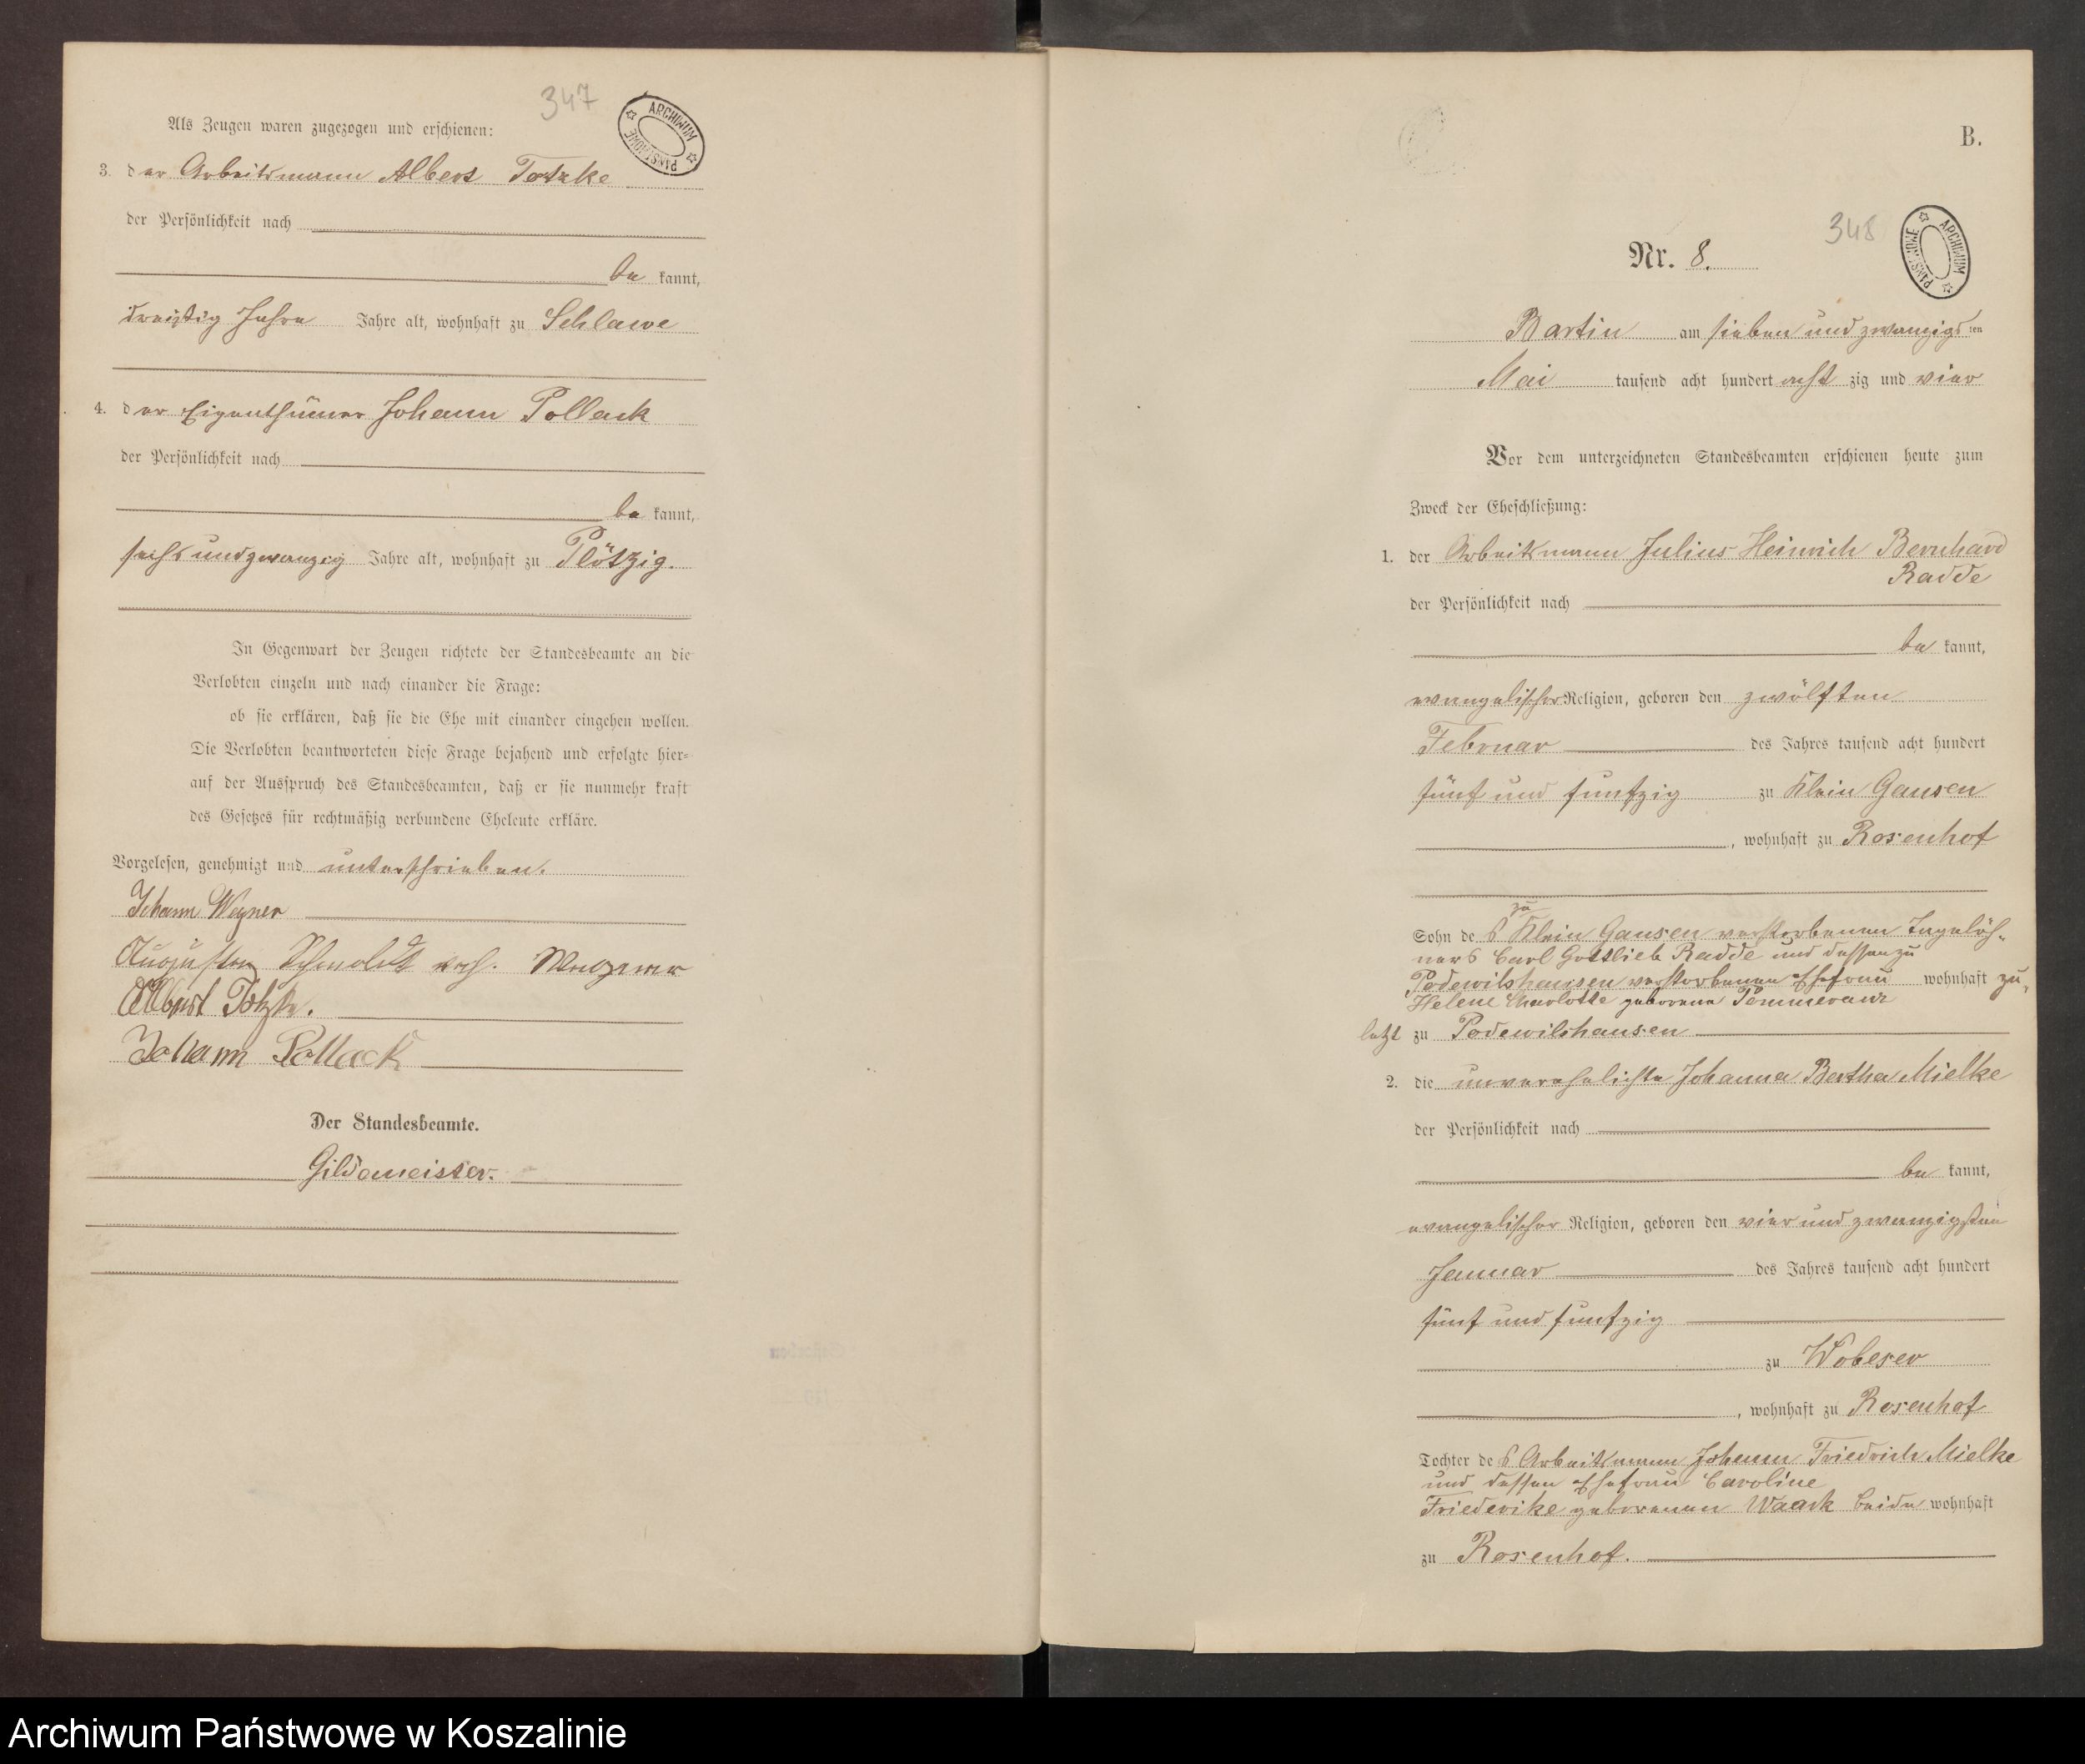 347
ARCHIWUM PAŃSTWOWE
Als Zeugen waren zugezogen und erschienen:
3. der Arbeitsmann Albert Totzke
der Persönlichkeit nach
be kannt,
dreißig Jahre Jahre alt, wohnhaft zu Schlawe
4. der Eigenthümer Johann Pollack
der Persönlichkeit nach
be kannt,
sechsundzwanzig Jahre alt, wohnhaft zu Plötzig.
In Gegenwart der Zeugen richtete der Standesbeamte an die
Verlobten einzeln und nach einander die Frage:
ob sie erklären, daß sie die Ehe mit einander eingehen wollen.
Die Verlobten beantworteten diese Frage bejahend und erfolgte hier-
auf der Ausspruch des Standesbeamten, daß er sie nunmehr kraft
des Gesetzes für rechtmäßig verbundene Eheleute erkläre.
Vorgelesen, genehmigt und unterschrieben.
Johann Wegner
Auguste Schmoldt
Albert Totzke.
Johann Pollack
Der Standesbeamte.
Gildemeister.
B.
348
ARCHIWUM PAŃSTWOWE
Nr. 8.
Bartin am sieben und zwanzigsten
Mai tausend acht hundert acht zig und vier
Vor dem unterzeichneten Standesbeamten erschienen heute zum
Zweck der Eheschließung:
1. der Arbeitsmann Julius Heinrich Bernhard
Radde
der Persönlichkeit nach
be kannt,
evangelischer Religion, geboren den zwölften
Februar des Jahres tausend acht hundert
fünf und funfzig zu Klein Gansen
, wohnhaft zu Rosenhof
zu
Sohn des Klein Gansen verstorbenen Tagelöh-
ners Carl Gottlieb Radde und dessen zu
Podewilshausen verstorbenen Ehefrau wohnhaft zu-
Helene Charlotte geborene Pommeranz
letzt zu Podewilshausen
2. die unverehelichte Johanna Bertha Mielke
der Persönlichkeit nach
be kannt,
evangelischer Religion, geboren den vier und zwanzigsten
Januar des Jahres tausend acht hundert
fünf und funfzig
zu Wobeser
, wohnhaft zu Rosenhof
Tochter des Arbeitsmann Johann Friedrich Mielke
und dessen Ehefrau Caroline
Friederike geborenen Waack beide wohnhaft
zu Rosenhof.
Archiwum Państwowe w Koszalinie